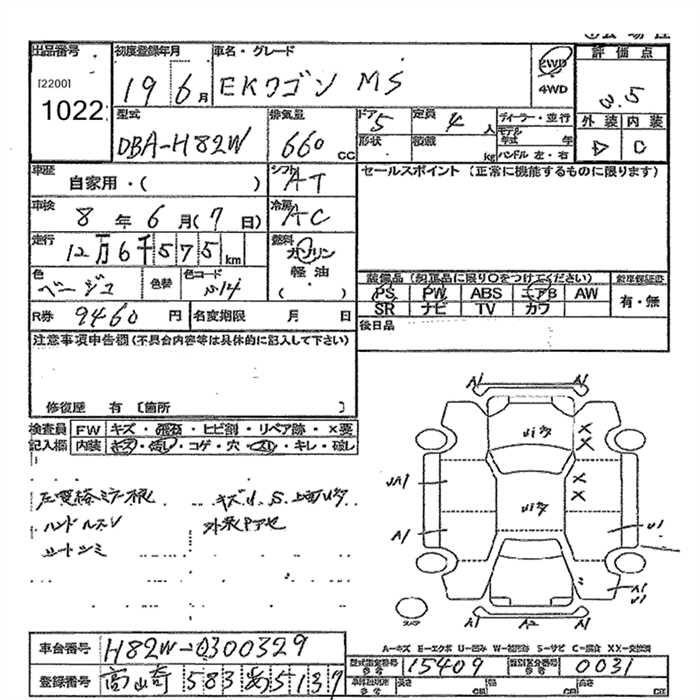 出品番号 初度登録年月 車名・グレード 2WD 4WD 評価点
[2200] 1022 19 6月 EKワゴン MS 3.5
型式 排気量 ドア 5 定員 4人 ディーラー・並行 外装 内装
DBA-H82W 660cc 形状 積載 kg モデル年式 年 ハンドル 左・右 D C
車歴 自家用・( ) シフト AT セールスポイント(正常に機能するものに限ります)
車検 8年6月(7日) 冷房 AC
走行 12万6千575km 燃料 ガソリン 軽油 ( ・ )
色 ベージュ 色替 色コード S14 装備品(純正品に限り○をつけてください) 新車保証書
PS PW ABS エアB AW 有・無
SR ナビ TV カワ
R券 9460円 名変期限 月 日 後日品
注意事項申告欄(不具合内容等は具体的に記入して下さい)
修復歴 有〔箇所 〕
検査員記入欄 FW キズ・飛石・ヒビ割・リペア跡・×要
内装 キズ・汚し・コゲ・穴・スレ・キレ・破し
ハンドルスレ
シートシミ
A1 A1
A1 U1
A1 A2 A1
スペア
A-キズ E-エクボ U-凹み W-補修跡 S-サビ C-腐食 XX-交換済
車台番号 H82W-0300329
型式指定番号 参考 15409 類別区分番号 参考 0031
登録番号 高崎 583 あ 5137
長さ cm 幅 cm 高さ cm